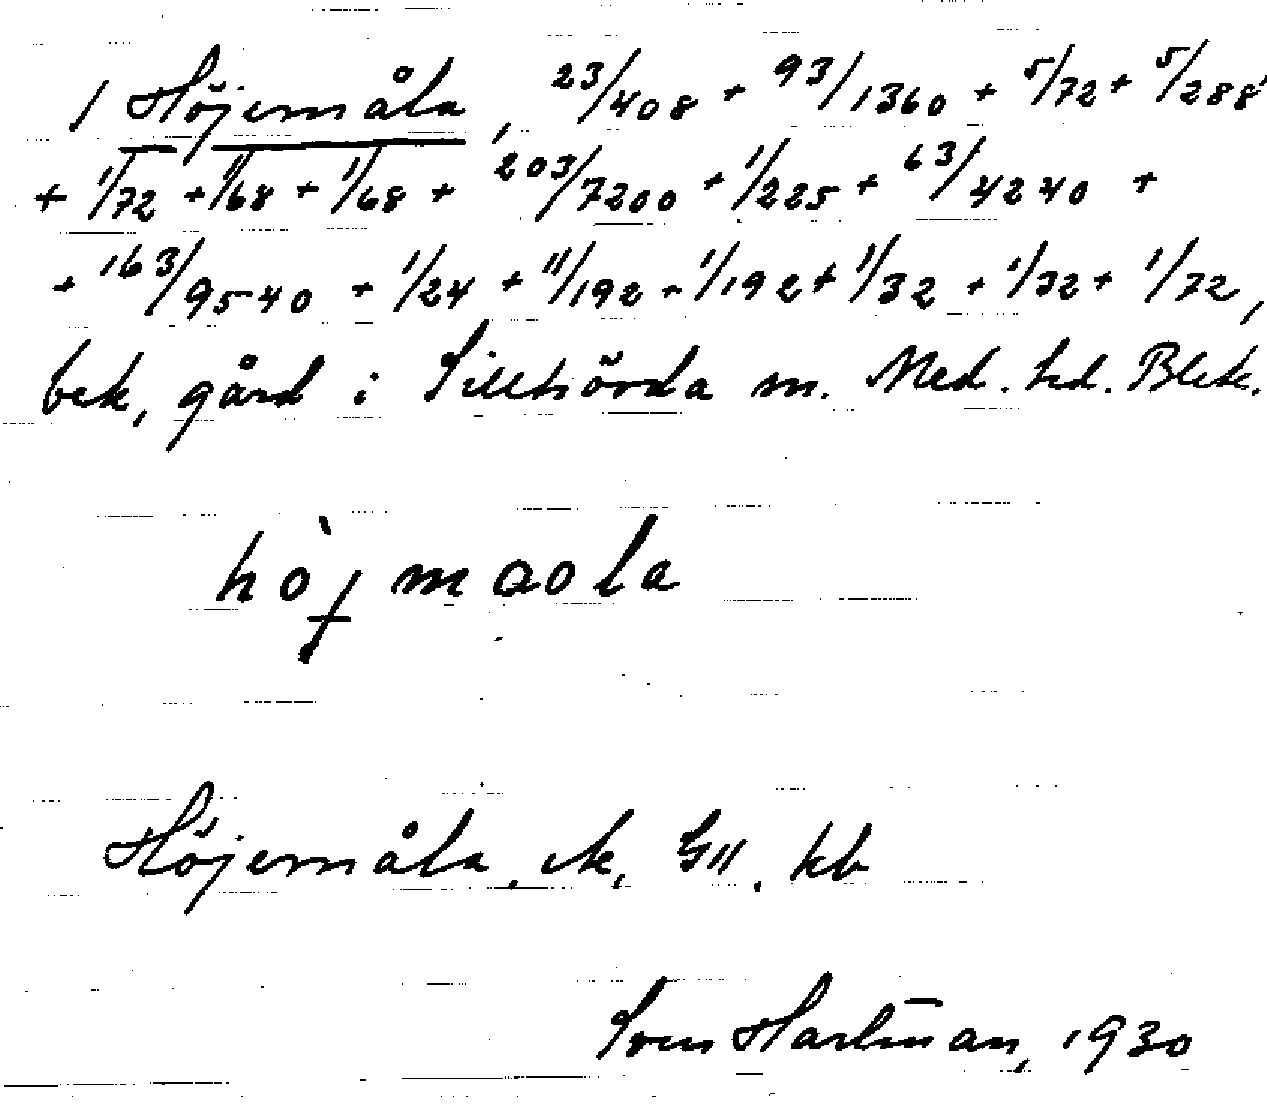 1 Höjemåla, 23/408 + 93/1360 + 5/72 + 5/288
+ 1/72 + 1/68 + 1/68 + 203/7200 + 1/225 + 63/4240 +
+ 163/9540 + 1/24 + 11/192 - 1/192 + 1/32 + 1/32 + 1/72,
bek, gård i Sillhövda sn. Med. hd. Blek.
hòjmaola
Höjemåla, ek, GII, kb
Sven Hartman, 1930